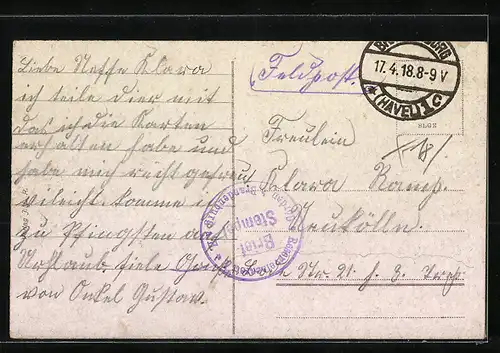 Liebe Neffe Klara
ich teile dier mit
das ich die Karten
erhalten habe und
habe mich recht gefreut
vileicht komme ich
zu Pfingsten auf
Urlaub. Viele
von Onkel Gustav.
Feldpost.
17.4.18.8-9 V
* (HAVEL) 1 c
Freulein
Klara
Neukölln.
Nr. 21
Brief
Stempel